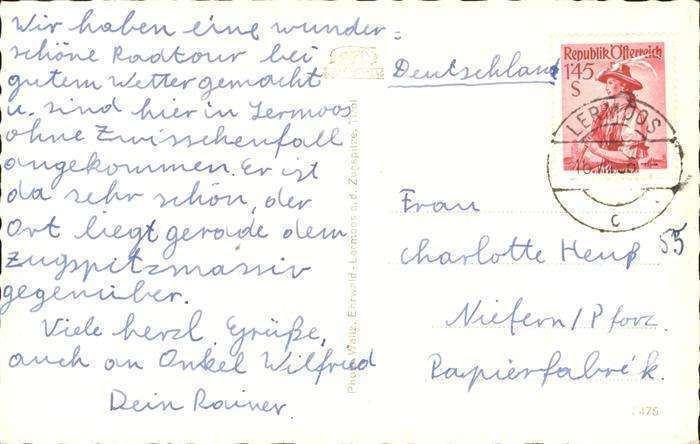 Wir haben eine wunder=
schöne Radtour bei
gutem Wetter gemacht
u. sind hier in Lermoos
ohne Zwisschenfall
angekommen. Er ist
da sehr schön, der
Ort liegt gerade dem
Zugspitzmassiv
gegenüber.
Viele herzl. Grüße,
auch an Onkel Wilfried
Dein Rainer.
Photo Waltz, Ehrwald-Lermoos a.d. Zugspitze, Tirol
Deutschland
Republik Österreich
1'45
S
LERMOOS
c
Frau
Charlotte Heuß
55
Niefern / Pforz.
Papierfabrik.
475